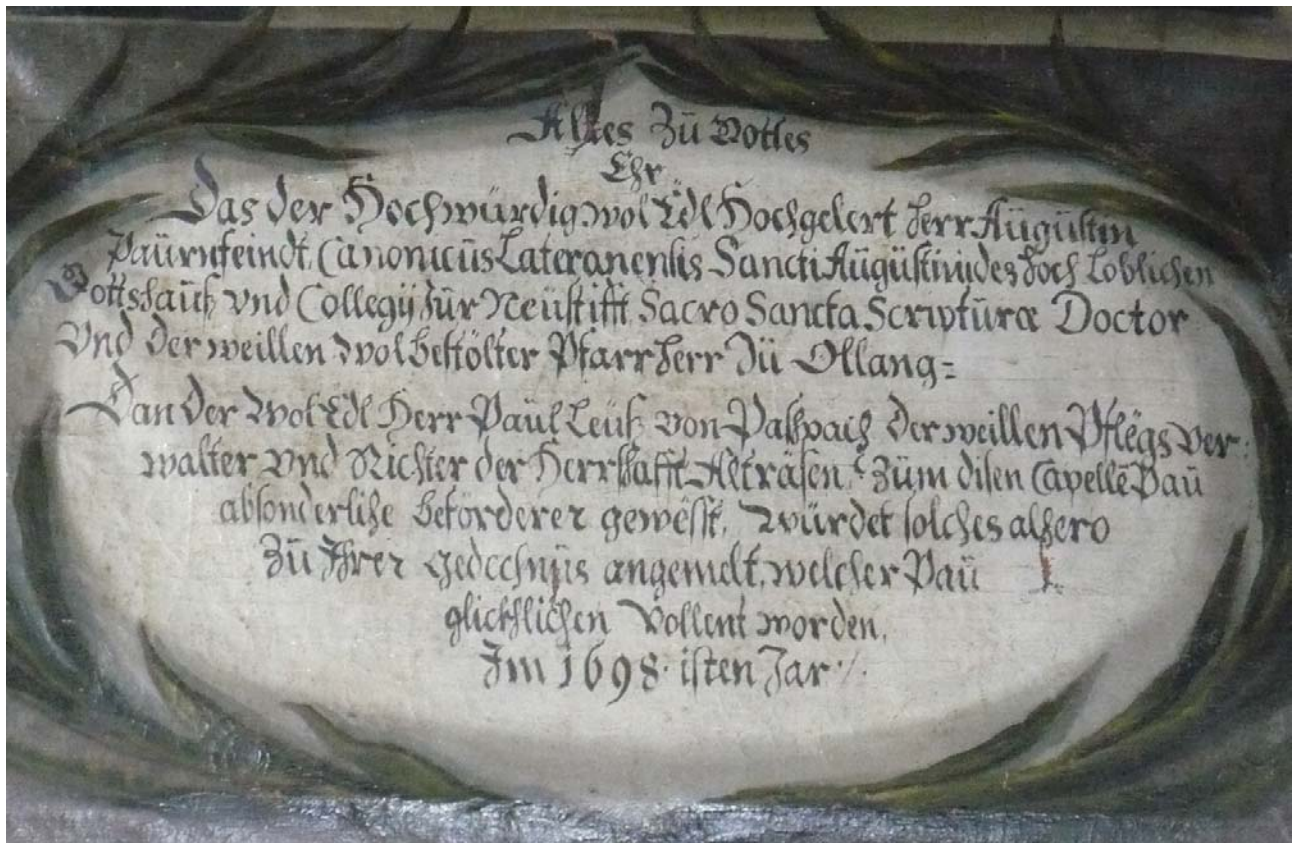 Alles Zů Gottes
Ehr
Das der Hochwürdig wol Edl Hochgelert Herr Aůgůstin
Paůrnfeindt, Canonicůs Lateranensis Sancti Aůgůstini, des hoch Loblichen
Gottshaůß vnd Collegij Zůr Neůstifft, Sacro Sancta Scriptůræ Doctor
Vnd der weillen wolbestölter Pfarr Herr Zů Ollang=
Dan der Wol Edl Herr Paůl Leůß von Paßpach der weillen Pflëgs ver:
walter vnd Richter der Herrschafft Alträsen, Zům disen Capellē Paů
absonderliche beförderer gewësst, würdet solches alhero
Zů Ihrer gedechnůs angemelt, welcher Paů
glickhlichen Vollent worden,
Im 1698·isten Jar·/.